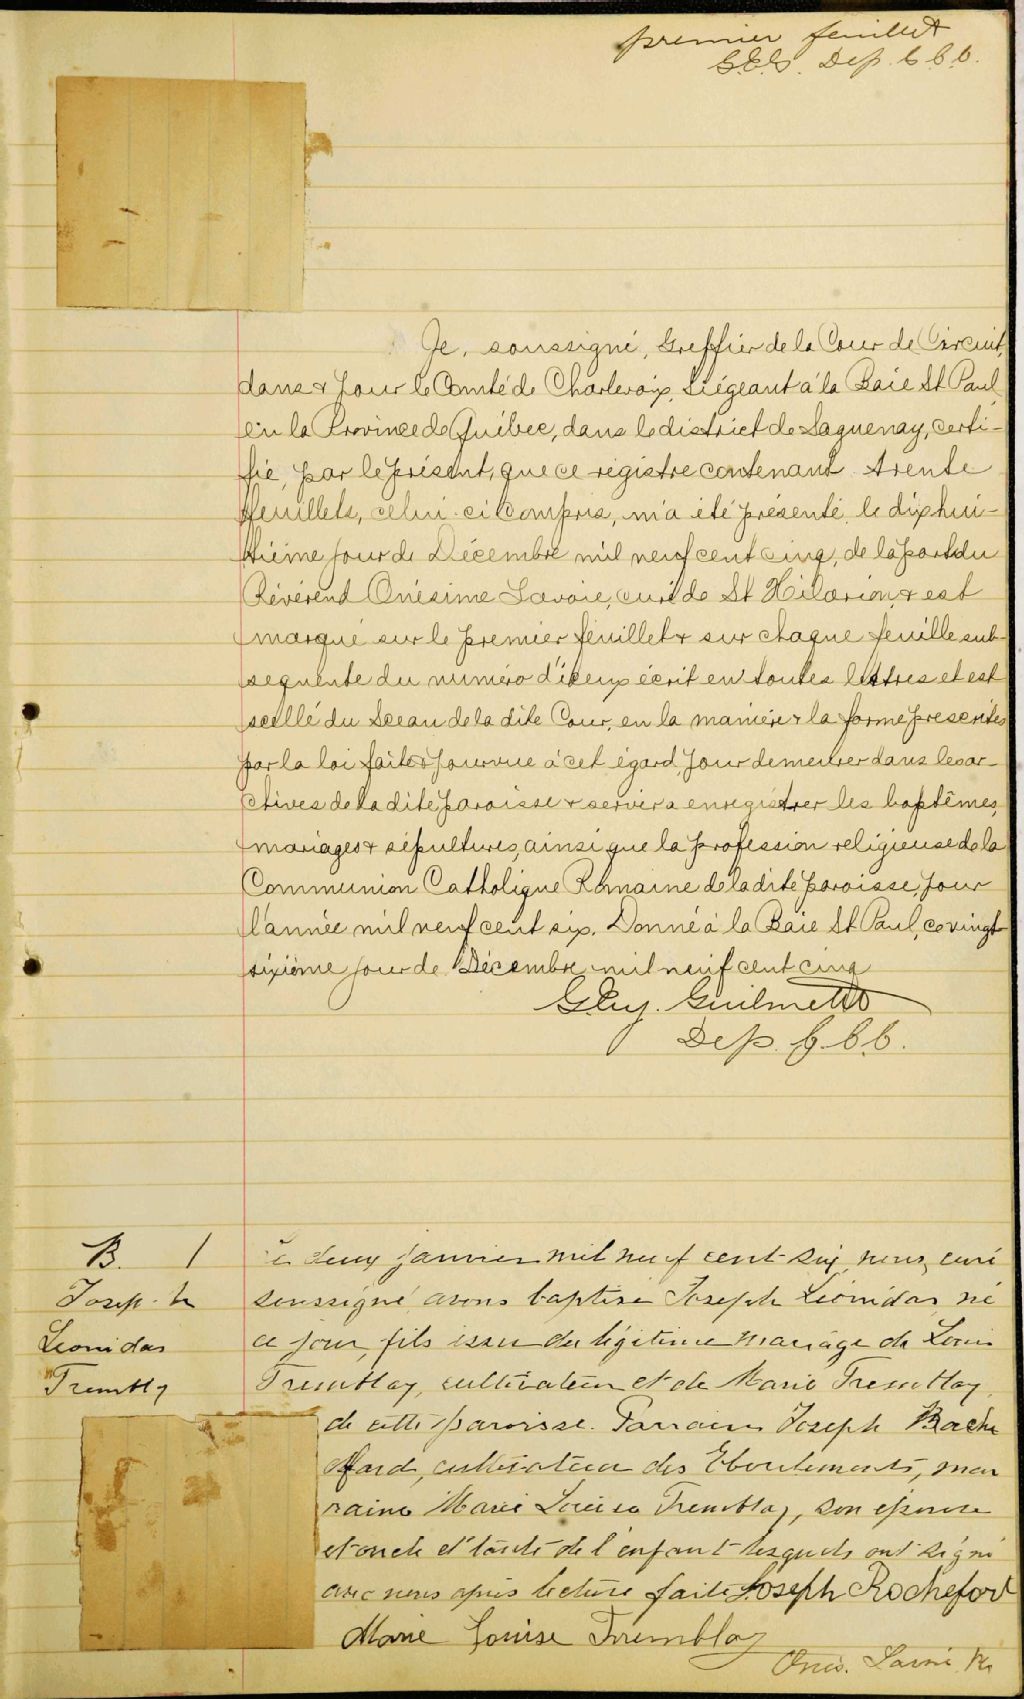 premier feuillet
G.E.G. Dep. C.C.C.
Je, soussigné, Greffier de la Cour de Circuit,
dans & pour le Comté de Charlevoix, Siégeant à la Baie St Paul,
en la Province de Québec, dans le district de Saguenay, certi-
fie, par le présent, que ce régistre contenant trente
feuillets, celui-ci compris, m'a été présenté le dixhui-
tième jour de Décembre mil neuf cent cinq, de la part du
Révérend Onésime Lavoie, curé de St Hilarion, & est
marqué sur le premier feuillet & sur chaque feuille sub-
sequente du numéro d'iceux écrit en toutes lettres et est
scellé du Sceau de la dite Cour, en la manière & la forme prescrites
par la loi faite & pourvue à cet égard, pour demeurer dans les ar-
chives de la dite paroisse & servir a enregistrer les baptêmes,
mariages & sépultures, ainsi que la profession religieuse de la
Communion Catholique Romaine de la dite paroisse, pour
l'année mil neuf cent six. Donné à la Baie St Paul, ce vingt-
sixième jour de Décembre mil neuf cent cinq
Guilmette
Dep. C.C.C.
B. 1
Joseph
Leonidas
Trembly
Le deux janvier mil neuf cent six, nous, curé
soussigné avons baptisé Joseph Léonidas, né
ce jour, fils issu du légitime mariage de Louis
Tremblay, cultivateur et de Marie Tremblay,
de cette paroisse. Parrain Joseph Roche
ford, cultivateur des Eboulements, mar
raine Marie Louise Tremblay, son épouse
et oncle et tante de l'enfant lesquels ont signé
avec nous après lecture faite Joseph Rochefort
Marie Louise Tremblay
Onés. Lavoie